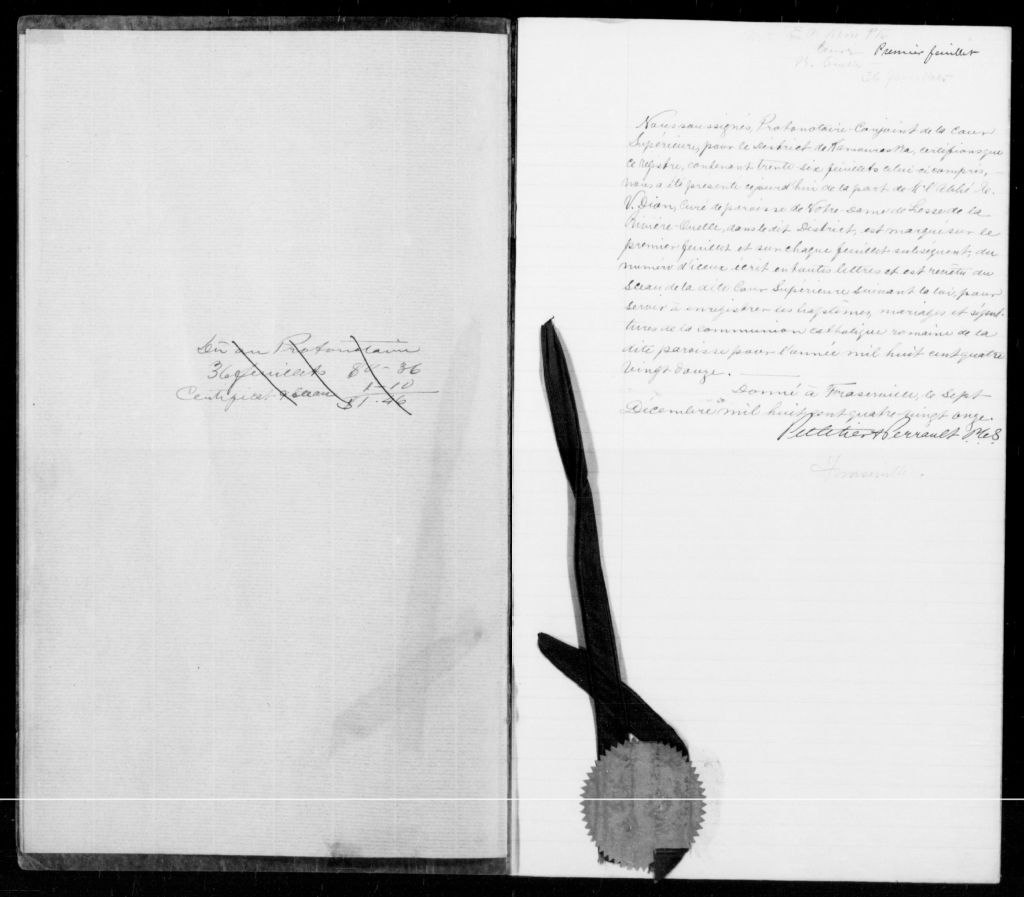 Dû au Protonotaire
36 feuillets $0-36
Certificat & Sceau 1-10
$1-46
Premier feuillet
Nous soussignés, Protonotaire-Conjoint de la Cour
Supérieure, pour le District de Kamouraska, certifions que
ce registre, contenant trente six feuillets celui-ci compris,
nous a été présenté ce jourd'hui de la part de Mr l'Abbé
V. Dion, Curé de paroisse de Notre-Dame de Liesse de la
Rivière-Ouelle, dans le dit District, est marqué sur le
premier feuillet et sur chaque feuillet subséquent, du
numéro d'iceux écrit en toutes lettres et est revêtu du
sceau de la dite Cour Supérieure suivant la loi, pour
servir à enregistrer les baptêmes, mariages et sépul-
tures de la communion catholique romaine de la
dite paroisse pour l'année mil huit cent quatre
vingt douze.
Donné à Fraserville, le sept
Décembre mil huit cent quatre-vingt onze.
Pelletier & Perrault P.C.S.
Fraserville.